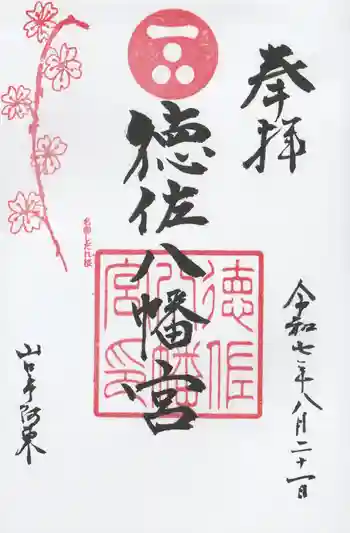 奉拝
徳佐八幡宮
徳佐八幡宮印
令和七年八月二十一日
名勝しだれ桜
山口市阿東